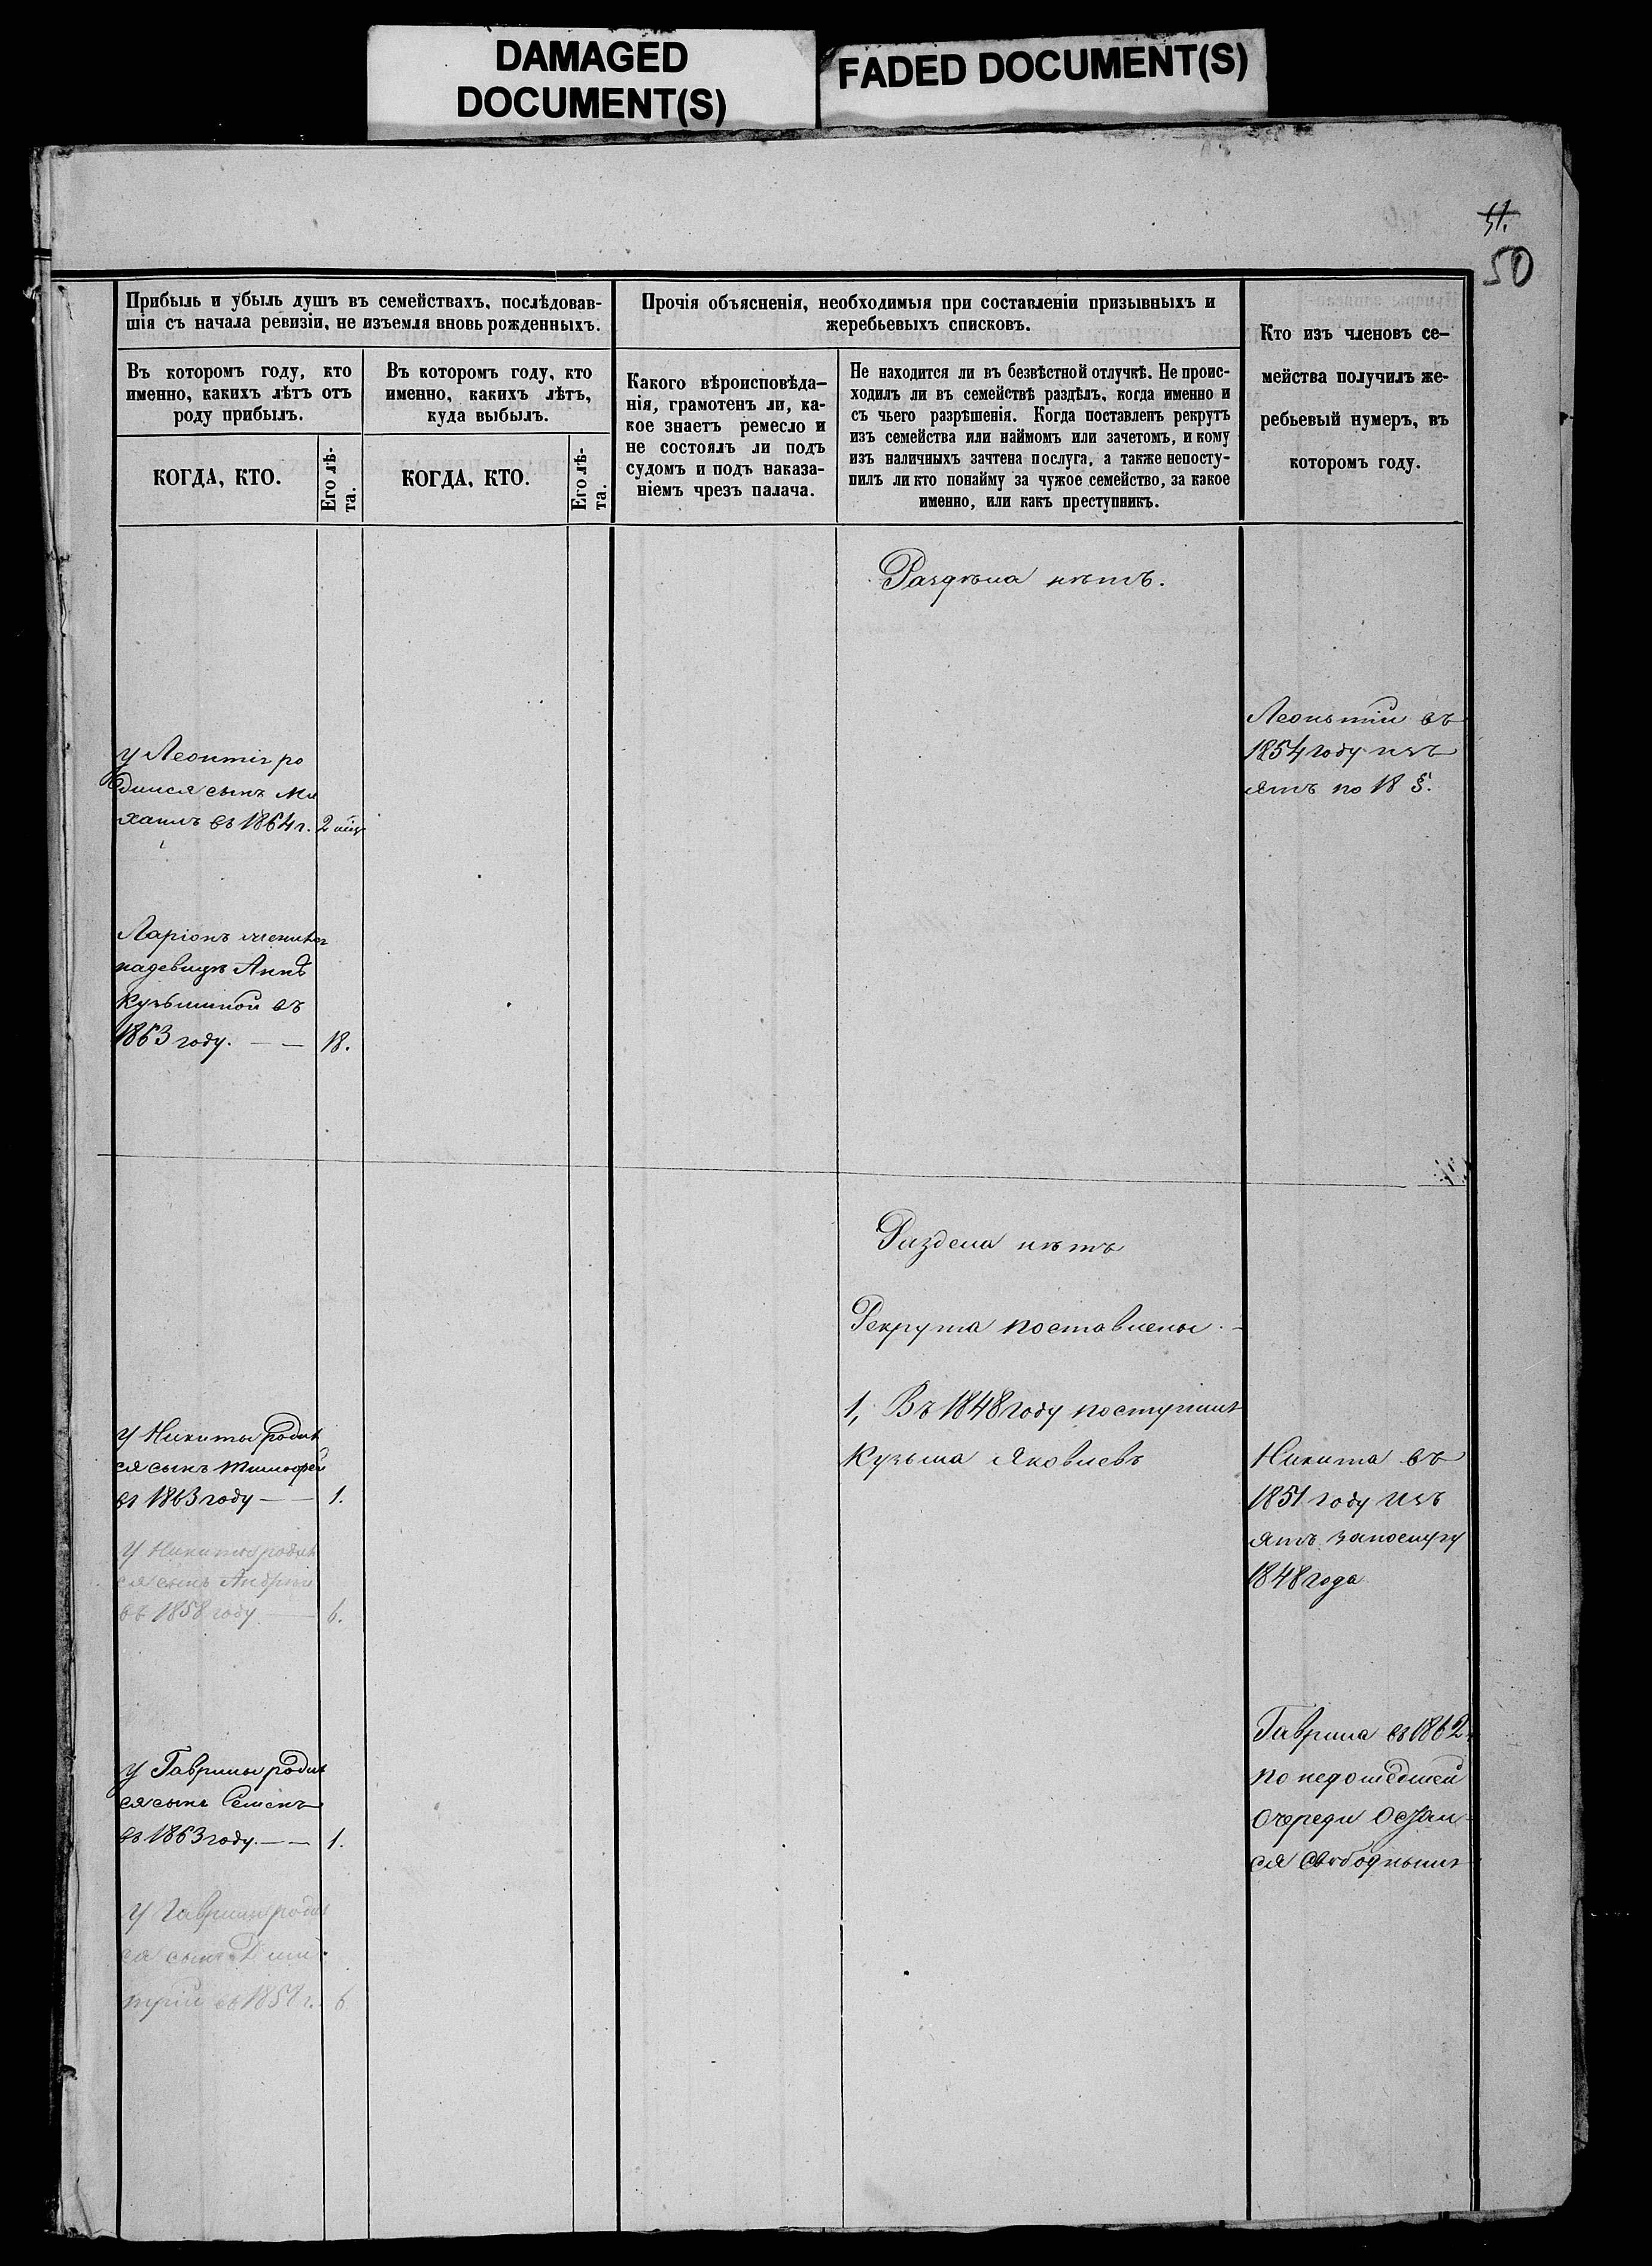 DAMAGED
DOCUMENT(S)
FADED DOCUMENT(S)
51.
50
Прибыль и убыль душъ въ семействахъ, послѣдовав-
шія съ начала ревизіи, не изъемля вновь рожденныхъ.
Въ которомъ году, кто
именно, какихъ лѣтъ отъ
роду прибылъ.
КОГДА, КТО.
Его лѣ-
та.
Въ которомъ году, кто
именно, какихъ лѣтъ,
куда выбылъ.
КОГДА, КТО.
Его лѣ-
та.
Прочія объясненія, необходимыя при составленіи призывныхъ и
жеребьевыхъ списковъ.
Какого вѣроисповѣда-
нія, грамотенъ ли, ка-
кое знаетъ ремесло и
не состоялъ ли подъ
судомъ и подъ наказа-
ніемъ чрезъ палача.
Не находится ли въ безвѣстной отлучкѣ. Не проис-
ходилъ ли въ семействѣ раздѣлъ, когда именно и
съ чьего разрѣшенія. Когда поставленъ рекрутъ
изъ семейства или наймомъ или зачетомъ, и кому
изъ наличныхъ зачтена послуга, а также непосту-
пилъ ли кто понайму за чужое семейство, за какое
именно, или какъ преступникъ.
Кто изъ членовъ се-
мейства получилъ же-
ребьевый нумеръ, въ
которомъ году.
Раздѣла нѣтъ.
Леонтій въ
1854 году изъ
ятъ по 18 §.
у Леонтія ро
дился сынъ Ми
хаилъ въ 1864 г. 2
Ларіонъ женился
надевицѣ Аннѣ
Кузьминой въ
1863 году. — — 18.
Раздела нѣтъ
Рекрута поставлены.
1, Въ 1848 году поступилъ
Кузьма Яковлевъ
у Никиты родил
ся сынъ Тимофей
въ 1863 году — — 1.
у Никиты родил
ся сынъ Андрей
въ 1858 году — 6.
Никита въ
1851 году изъ
ятъ запослугу
1848 года
Гаврила въ 1862
по недошедшей
очереди остал-
ся свободнымъ
у Гаврилы родил
ся сынъ Семенъ
въ 1863 году. — — 1.
у Гаврилы родил
ся сынъ Дми-
трій въ 1858 г. 6